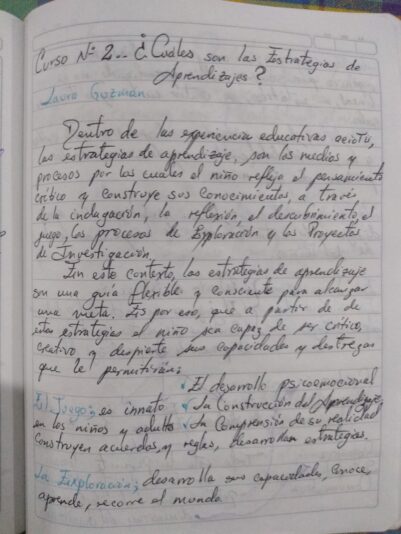 Curso N° 2... ¿Cuáles son las Estrategias de
Aprendizajes?
Laura Guzman
Dentro de las experiencia educativas aeiotu,
las estrategias de aprendizaje, son los medios y
procesos por los cuales el niño refleja el pensamiento
crítico y construye sus conocimientos, a través
de la indagación, la reflexión, el descubrimiento, el
juego, los procesos de Exploración y los Proyectos
de Investigación.
En este contexto, las estrategias de aprendizaje
son una guía flexible y consciente para alcanzar
una meta. Es por eso, que a partir de de
estas estrategias el niño sea capaz de ser crítico,
creativo y despierte sus capacidades y destrezas
que le permitirán;
✓ El desarrollo psicoemocional
El Juego; es innato ✓ La Construcción del Aprendizaje
en los niños y adulto ✓ La Comprensión de su realidad
Construyen acuerdos, y reglas, desarrollan estrategias.
La Exploración; desarrolla sus capacidades, conoce,
aprende, recorre el mundo